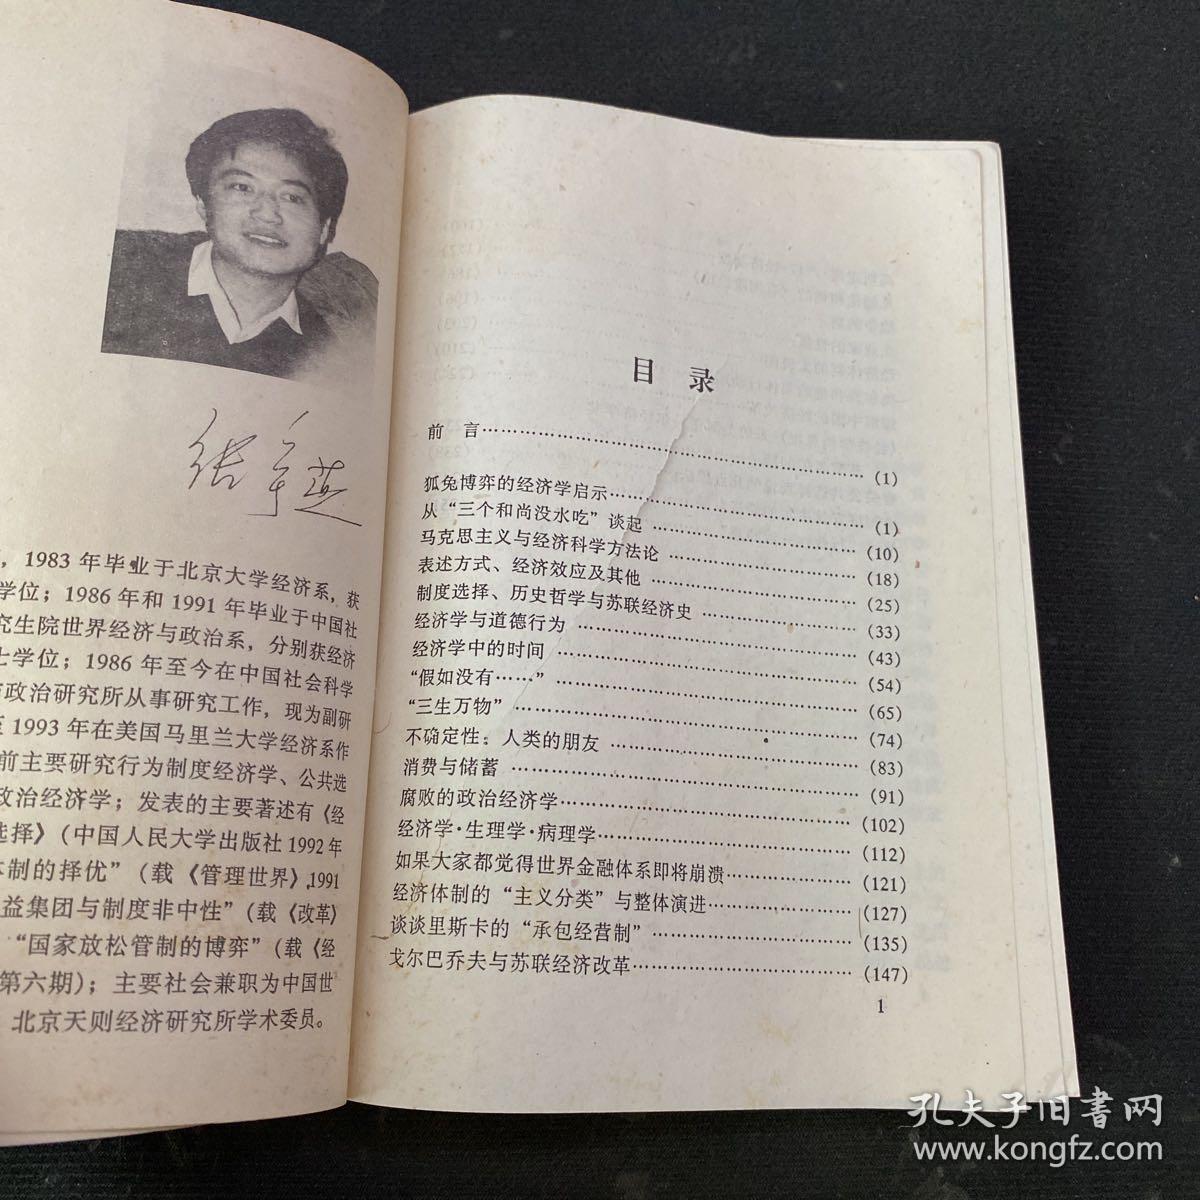 张宇燕
，1983年毕业于北京大学经济系，获
学位；1986年和1991年毕业于中国社
究生院世界经济与政治系，分别获经济
士学位；1986年至今在中国社会科学
政治研究所从事研究工作，现为副研
至1993年在美国马里兰大学经济系作
前主要研究行为制度经济学、公共选
政治经济学；发表的主要著述有《经
选择》（中国人民大学出版社1992年
体制的择优”（载《管理世界》，1991
益集团与制度非中性”（载《改革》
“国家放松管制的博弈”（载《经
第六期）；主要社会兼职为中国世
北京天则经济研究所学术委员。
目录
前言……(1)
狐兔博弈的经济学启示……(1)
从“三个和尚没水吃”谈起……(10)
马克思主义与经济科学方法论……(18)
表述方式、经济效应及其他……(25)
制度选择、历史哲学与苏联经济史……(33)
经济学与道德行为……(43)
经济学中的时间……(54)
“假如没有……”……(65)
“三生万物”……(74)
不确定性：人类的朋友……(83)
消费与储蓄……(91)
腐败的政治经济学……(102)
经济学·生理学·病理学……(112)
如果大家都觉得世界金融体系即将崩溃……(121)
经济体制的“主义分类”与整体演进……(127)
谈谈里斯卡的“承包经营制”……(135)
戈尔巴乔夫与苏联经济改革……(147)
1
孔夫子旧书网
www.kongfz.com